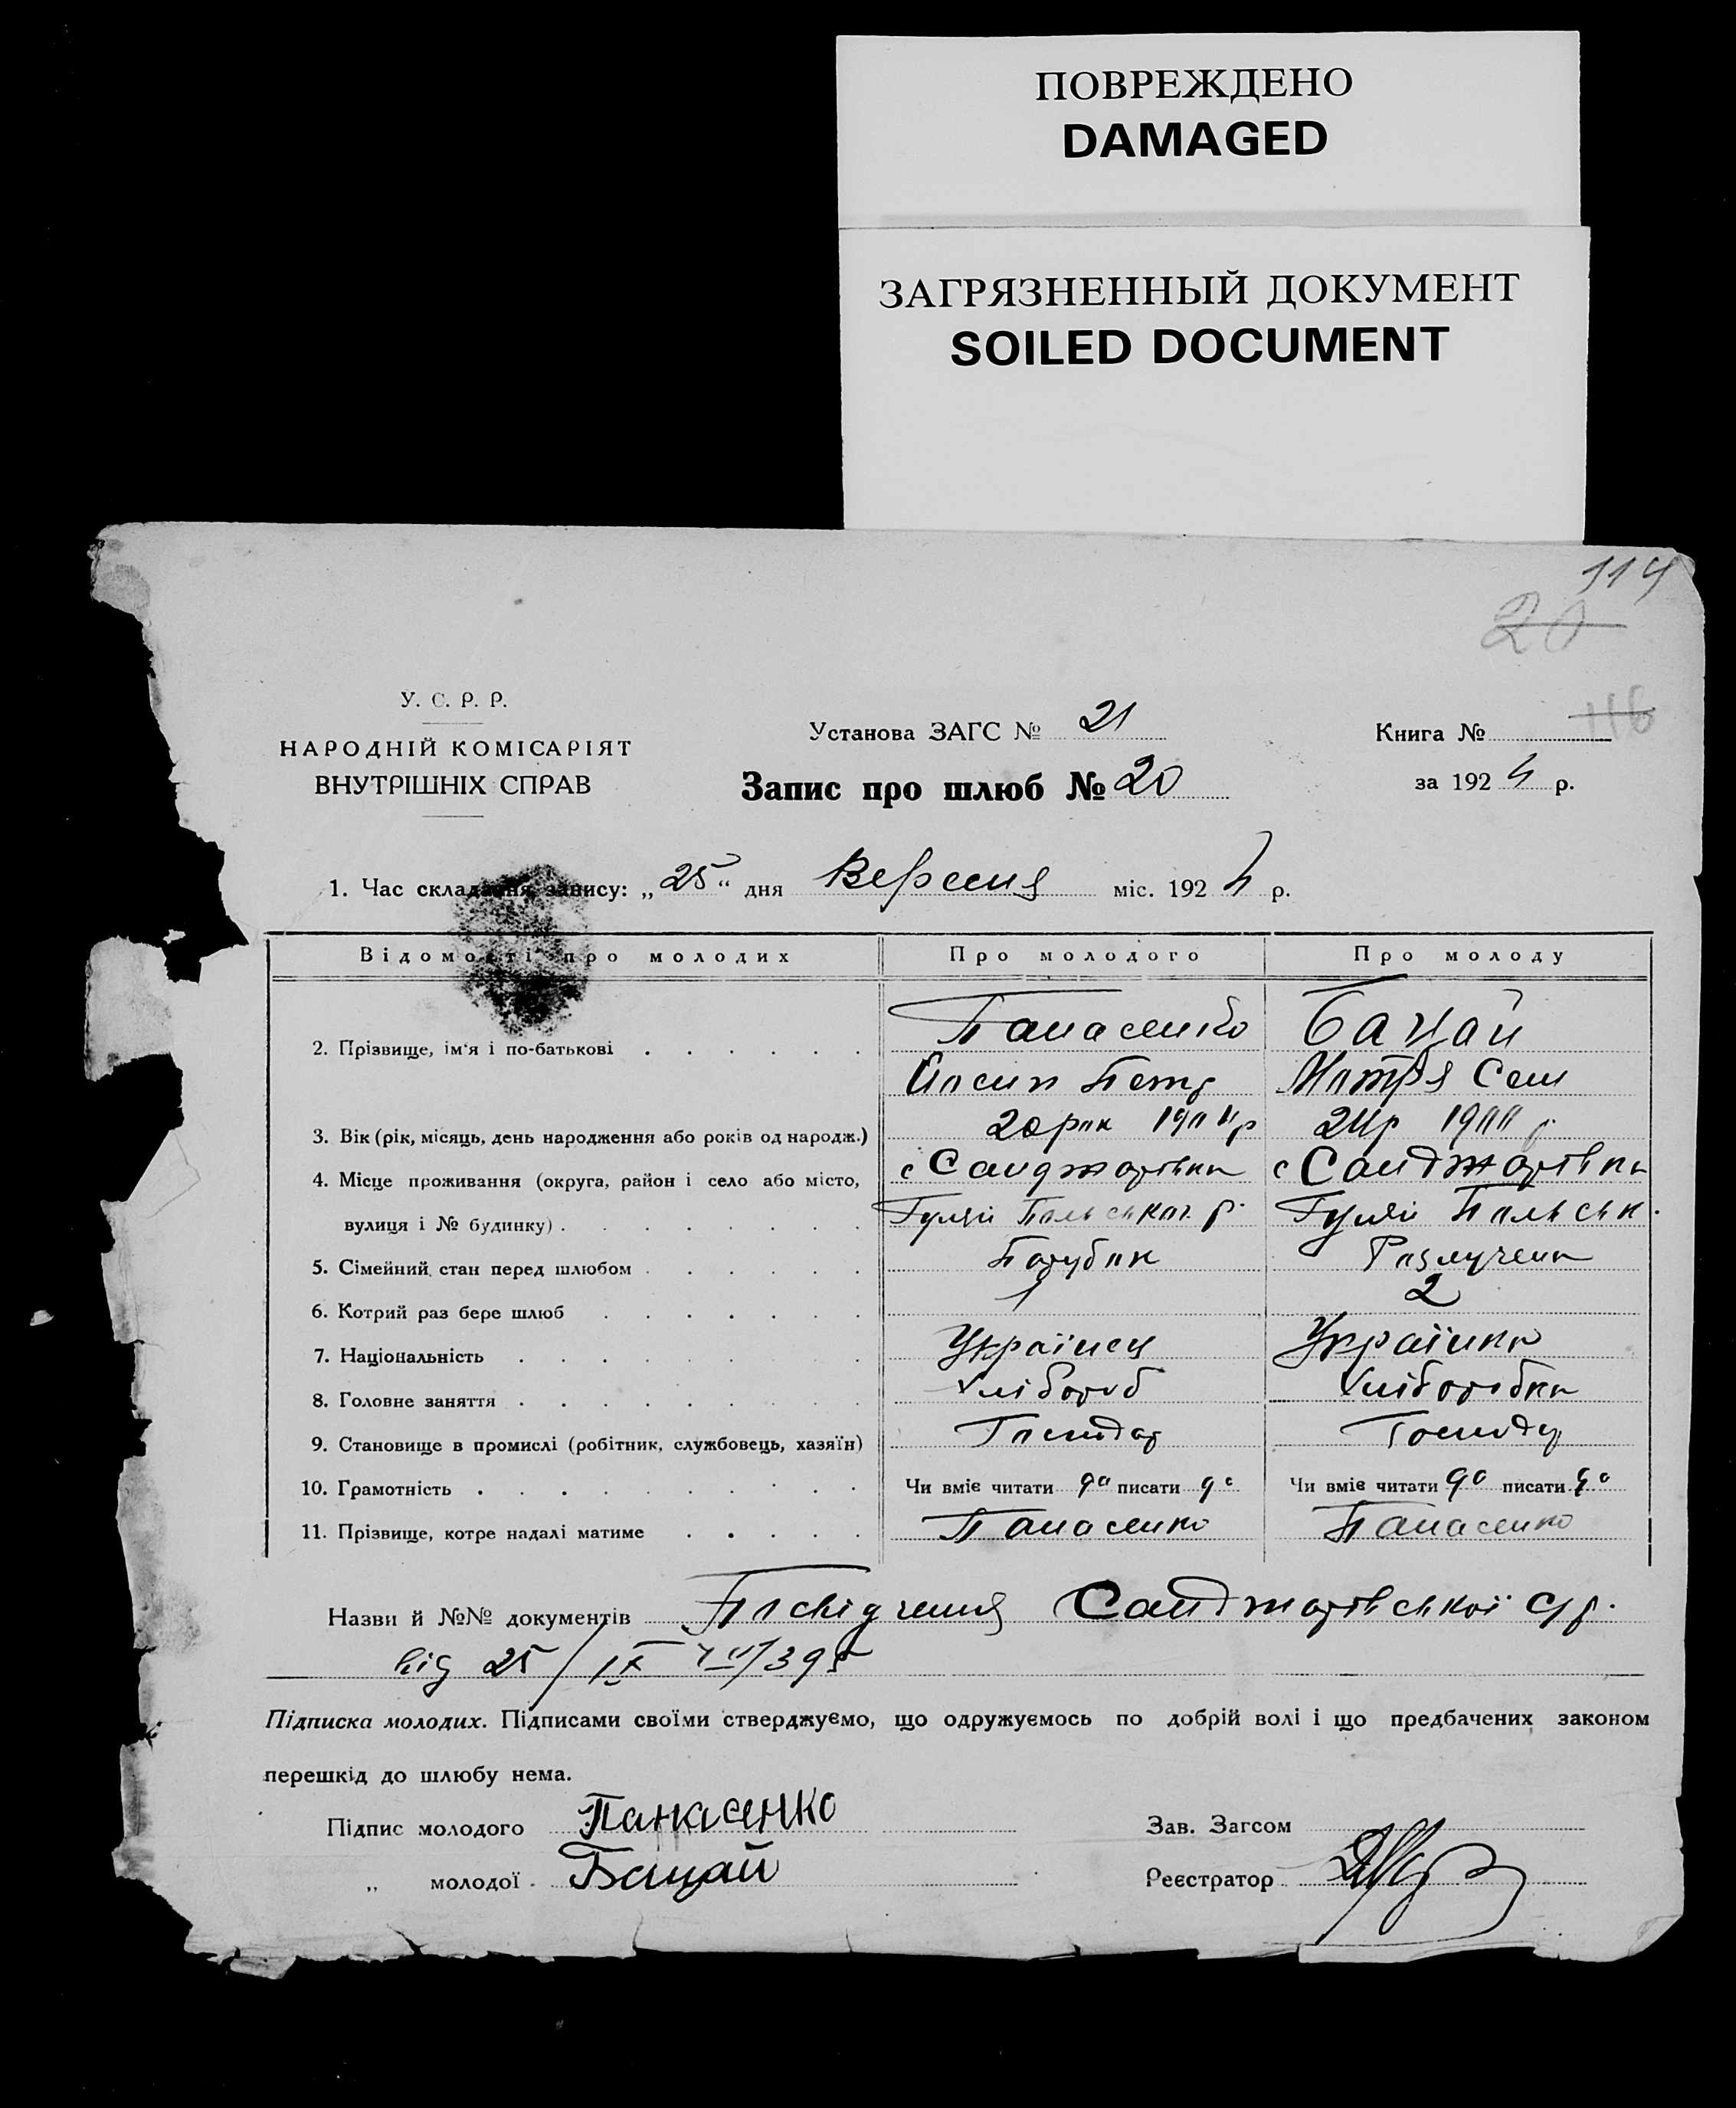 ПОВРЕЖДЕНО
DAMAGED
ЗАГРЯЗНЕННЫЙ ДОКУМЕНТ
SOILED DOCUMENT
114
20
116
У. С. Р. Р.
НАРОДНІЙ КОМІСАРІЯТ
ВНУТРІШНІХ СПРАВ
Установа ЗАГС № 21
Запис про шлюб № 20
Книга №
за 1924 р.
1. Час складання запису: „25“ дня Вересня міс. 1924 р.
Відомості про молодих Про молодого Про молоду
2. Прізвище, ім'я і по-батькові Панасенко Бацай
Йосип Петр Мотря Сем
3. Вік (рік, місяць, день народження або років од народж.) 20 рок 1904 р 24 р 1900 р
4. Місце проживання (округа, район і село або місто, с Санджарівка с Санджарівка
вулиця і № будинку) Гуляй Польськог. р. Гуляй Польськ.
5. Сімейний стан перед шлюбом Парубок Розлучена
6. Котрий раз бере шлюб 1 2
7. Національність Українец Українка
8. Головне заняття Хлібороб Хліборобка
9. Становище в промислі (робітник, службовець, хазяїн) Господар Господ
10. Грамотність Чи вміє читати да писати да Чи вміє читати да писати да
11. Прізвище, котре надалі матиме Панасенко Панасенко
Назви й №№ документів Посвідчення Санджарівської С/р.
від 25/IX 395
Підписка молодих. Підписами своїми стверджуємо, що одружуємось по добрій волі і що предбачених законом
перешкід до шлюбу нема.
Підпис молодого Панасенко Зав. Загсом
„ молодої Бацай Реєстратор